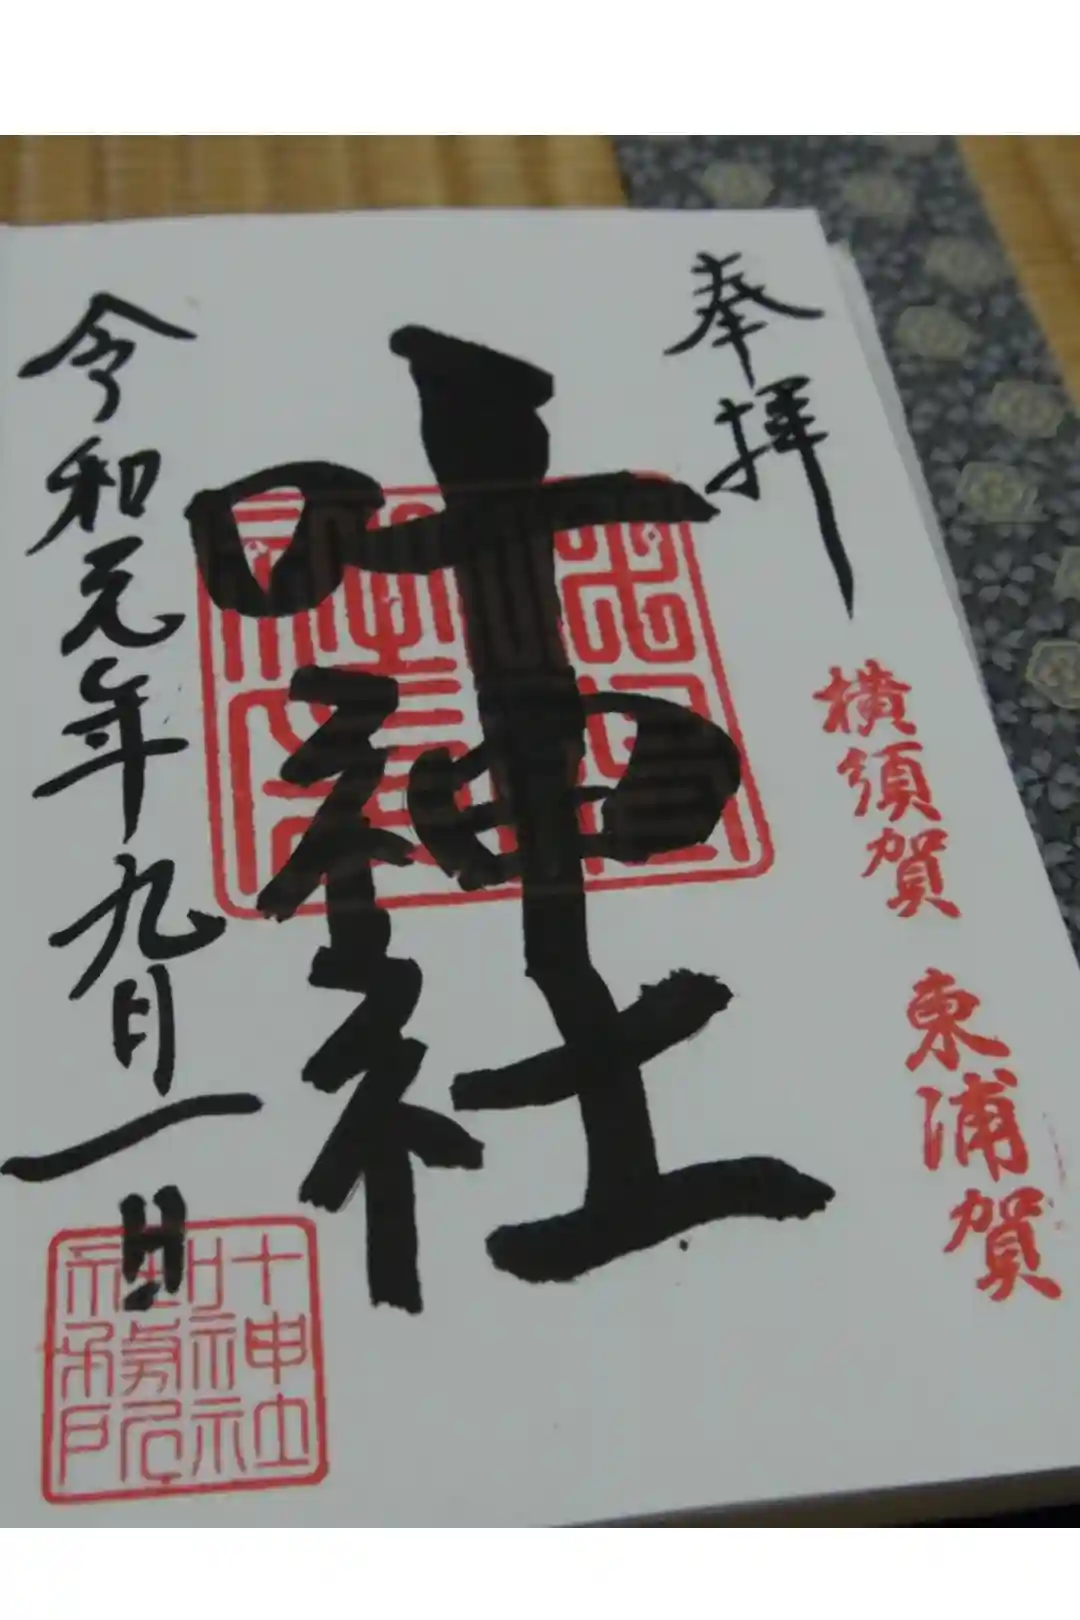 奉拝
横須賀 東浦賀
叶神社
令和元年九月一日
叶神社
社務所